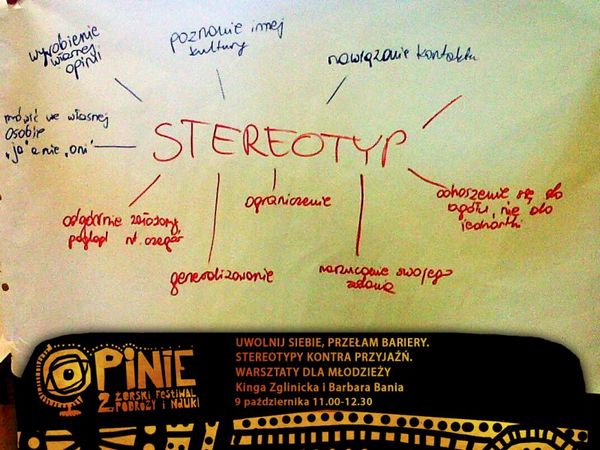 wyrobienie
własnej
opinii
poznanie innej
kultury
nawiązanie kontaktu
mówić we własnej
osobie
„ja” a nie „oni”
STEREOTYP
odgórnie założony
pogląd nt. czegoś
generalizowanie
ograniczenie
narzucanie swojego
zdania
odnoszenie się do
ogółu, nie do
jednostki
OPINIE
2. ŻORSKI FESTIWAL
PODRÓŻY i NAUKI
UWOLNIJ SIEBIE, PRZEŁAM BARIERY.
STEREOTYPY KONTRA PRZYJAŹŃ.
WARSZTATY DLA MŁODZIEŻY
Kinga Zglinicka i Barbara Bania
9 października 11.00-12.30